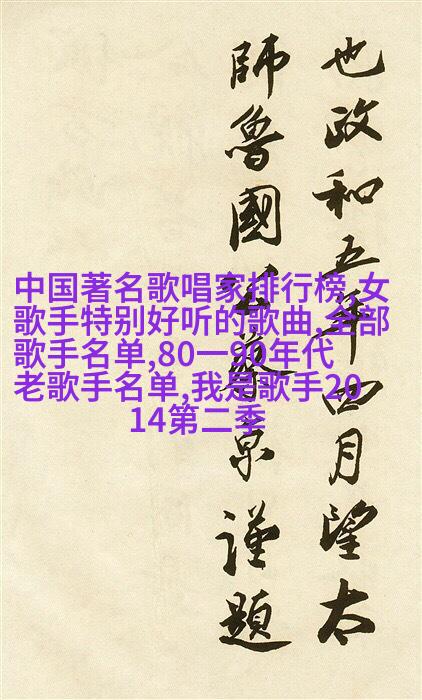 也政和五年四月望太
師魯國公蔡京謹題
中国著名歌唱家排行榜,女
歌手特别好听的歌曲,全部
歌手名单,80一90年代
老歌手名单,我是歌手20
14第二季